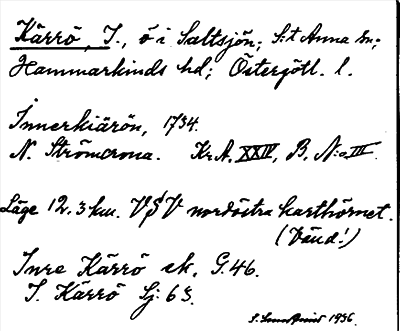 Kärrö, I., ö i Saltsjön; S:t Anna sn;
Hammarkinds hd; Östergötl. l.
Innerkiärön, 1734.
N. Strömcrona. Kr.A. XXIV, B. N:o III.
Läge 12.3 km. VSV nordöstra karthörnet.
(Vänd!)
Inre Kärrö ek. G.46.
I. Kärrö Sj: 63.
S. 1936.